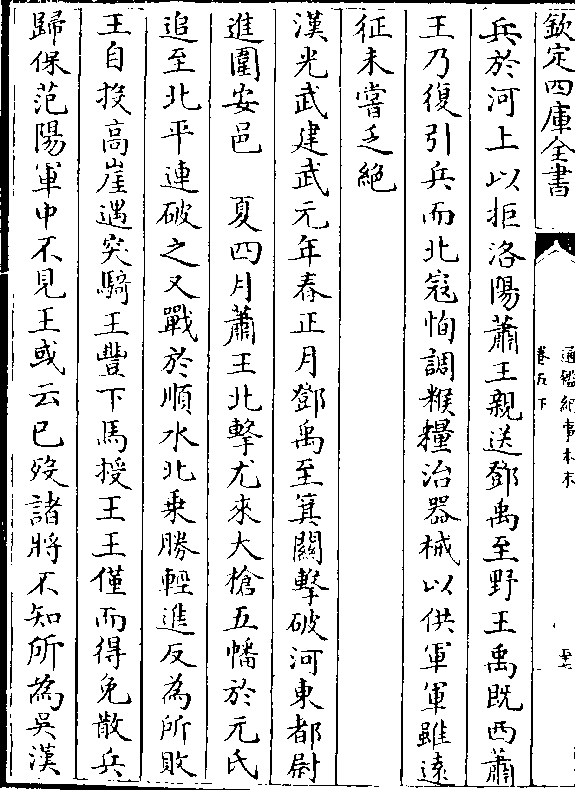 欽定四庫全書
通鑑紀事本末
卷五下
兵於河上以拒洛陽蕭王親送鄧禹至野王禹既西蕭
王乃復引兵而北寇恂調糇糧治器械以供軍軍雖遠
征未嘗乏絶
漢光武建武元年春正月鄧禹至箕關擊破河東都尉
進圍安邑　夏四月蕭王北擊尤來大槍五幡於元氏
追至北平連破之又戰於順水北乗勝輕進反為所敗
王自投高崖遇突騎王豐下馬授王王僅而得免散兵
歸保范陽軍中不見王或云已歿諸將不知所為吳漢